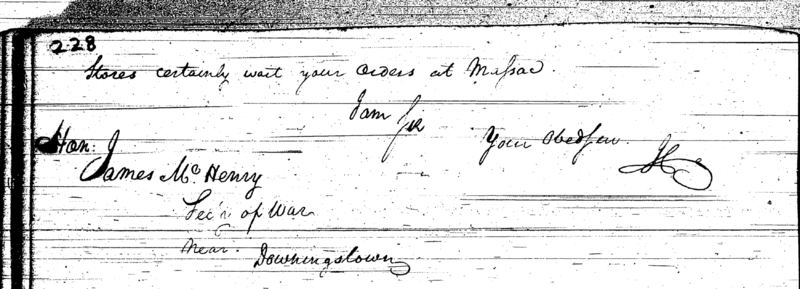 228
Stores certainly wait your orders at Massac.
I am Sir
Your Obed Ser.
Hon:
James McHenry
Sec'y of War
near
Downingstown